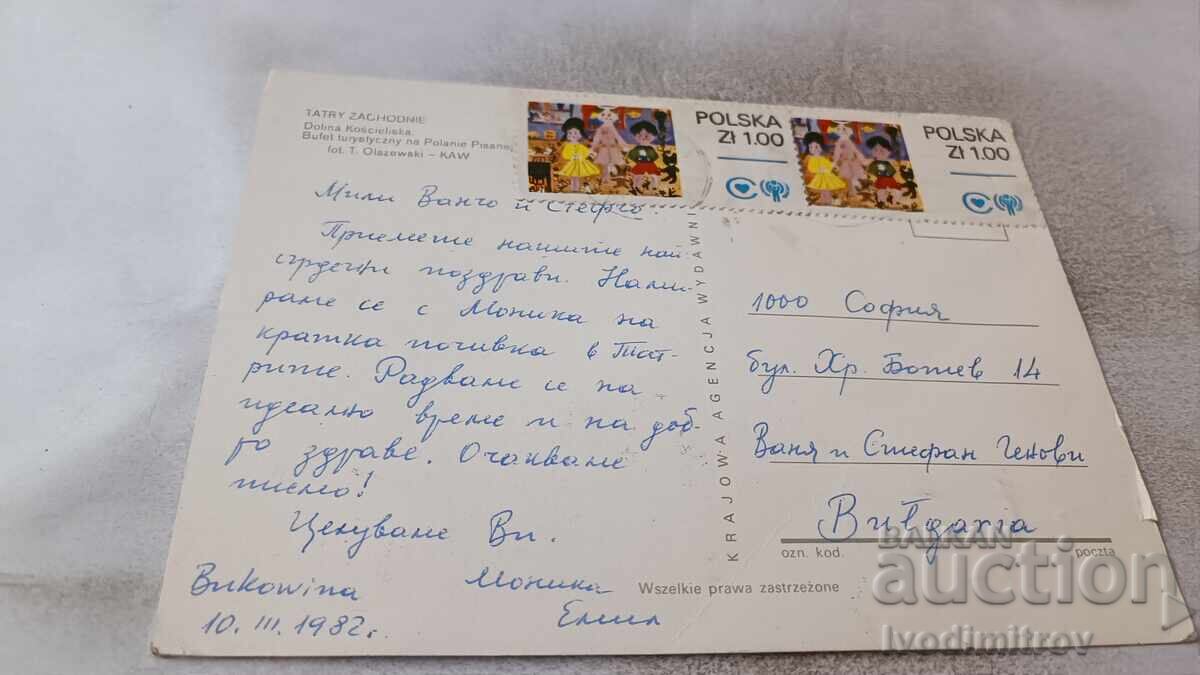 TATRY ZACHODNIE
Dolina Kościeliska.
Bufet turystyczny na Polanie Pisanej
fot. T. Olszewski – KAW
POLSKA
Zł 1.00
POLSKA
Zł 1.00
Мили Ванчо и Стефчо.
Приемете нашите най
сърдечни поздрави. Нами-
раме се с Моника на
кратка почивка в Тат-
рите. Радваме се на
идеално време и на доб-
ро здраве. Очакваме
писмо!
Целуваме Ви.
Моника
Емил
Bukowina
10.III.1982г.
KRAJOWA AGENCJA WYDAWNI
1000 София
бул. Хр. Ботев 14
Ваня и Стефан Генови
ozn. kod.
poczta
Wszelkie prawa zastrzeżone
BALKAN
auction
Ivodimitrov